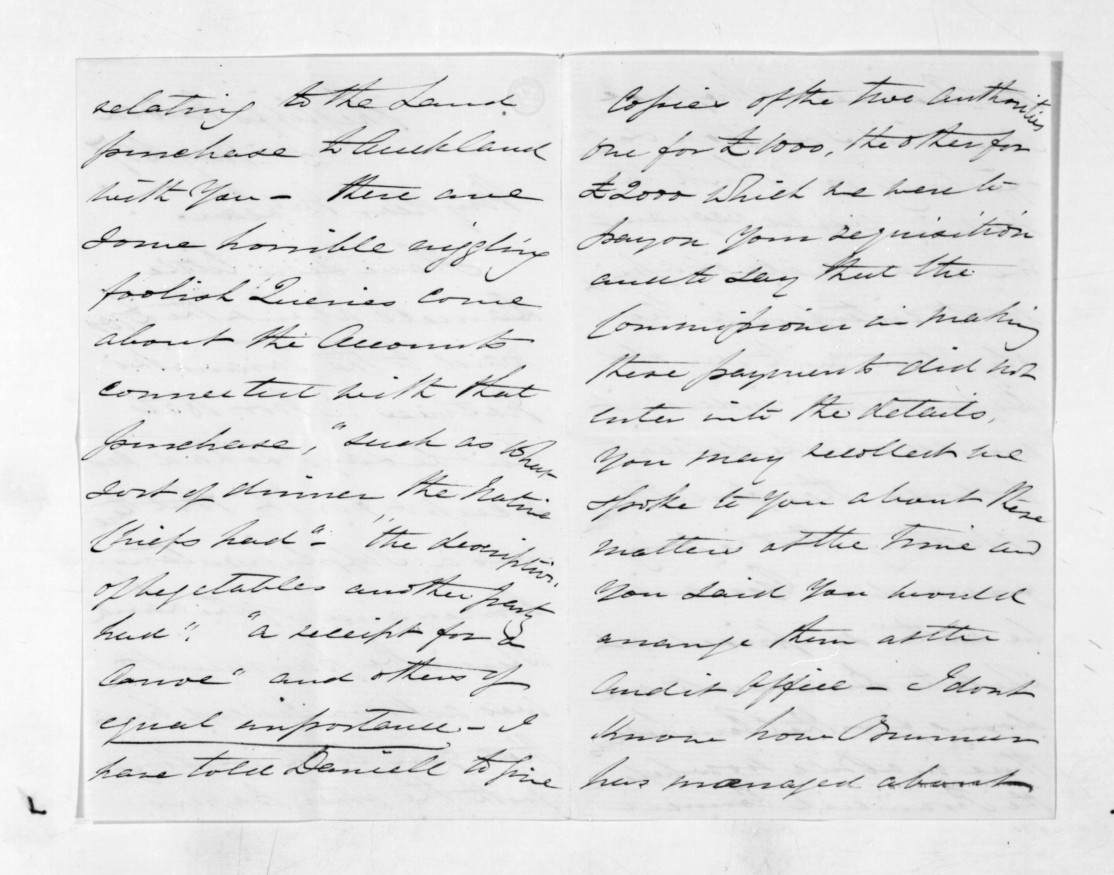 relating to the Land
purchase to Auckland
with You - there are
some horrible niggling
foolish Queries come
about the Accounts
connected with that
purchase, "such as what
sort of dinner the Native
Chiefs had" - "the description
of vegetables another party
had". "a receipt for a
Canoe" and others of
equal importance - I
have told Daniell to give
Copies of the two authorities
one for £1000, the other for
£2000 which we were to
pay on Your requisition
and to say that the
Commissioner in making
these payments did not
enter into the details.
You may recollect we
spoke to You about these
matters at the time and
You said You would
arrange them at the
Audit Office - I dont
Know how
has managed about